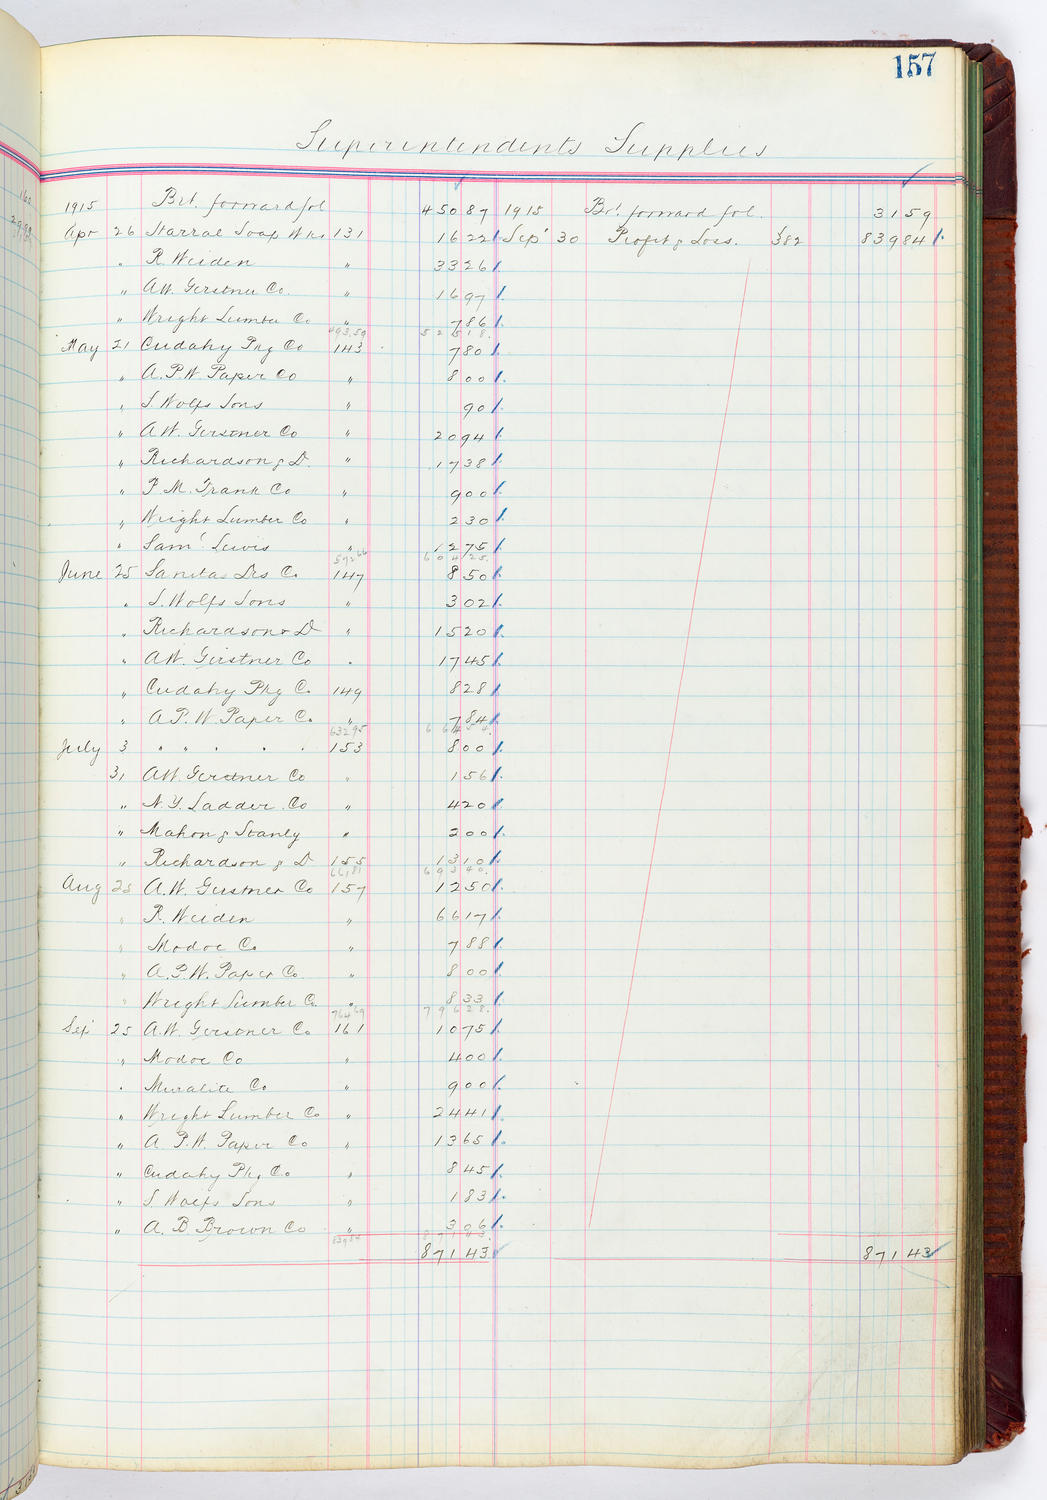 157
Superintendents Supplies
1915 Brt. forward fol 450 87 1915 Brt. forward fol. 31 59
Apr 26 Soap Wks 131 16 22 Sep 30 Profit & Loss. 382 839 84
" R. Weiden " 33 26
" A.W. Gerstner Co. " 16 97
" Wright Lumber Co " 7 86
493.59 525 18.
May 21 Cudahy Pkg Co 143 7 80
" A.P.W. Paper Co " 8 00
" S. Wolfs Sons " 90
" A.W. Gerstner Co " 20 94
" Richardson & D. " 17 38
" P. M. Frank Co " 9 00
" Wright Lumber Co " 2 30
" Saml. Lewis " 12 75
572 66 604 25.
June 25 Sanitas Co. 147 8 50
" S. Wolfs Sons " 3 02
" Richardson & D " 15 20
" A.W. Gerstner Co " 17 45
" Cudahy Pkg Co. 149 8 28
" A.P.W. Paper Co. " 7 84
632 95 664 54.
July 3 " " " " " 153 8 00
31 A.W. Gerstner Co " 1 56
" N.Y. Ladder Co " 4 20
" Mahon & Stanly " 2 00
" Richardson & D 155 13 10
661 81 693 40.
Aug 25 A.W. Gerstner Co 157 12 50
" R. Weiden " 66 17
" Modoc Co. " 7 88
" A.P.W. Paper Co. " 8 00
" Wright Lumber Co. " 8 33
764 69 796 28.
Sep 25 A.W. Gerstner Co. 161 10 75
" Modoc Co " 4 00
" Muralite Co. " 9 00
" Wright Lumber Co " 24 41
" A.P.W. Paper Co " 13 65
" Cudahy Pkg Co. " 8 45
" S. Wolfs Sons " 1 83
" A. B. Brown Co " 3 06
839 84 871 43.
871 43 871 43